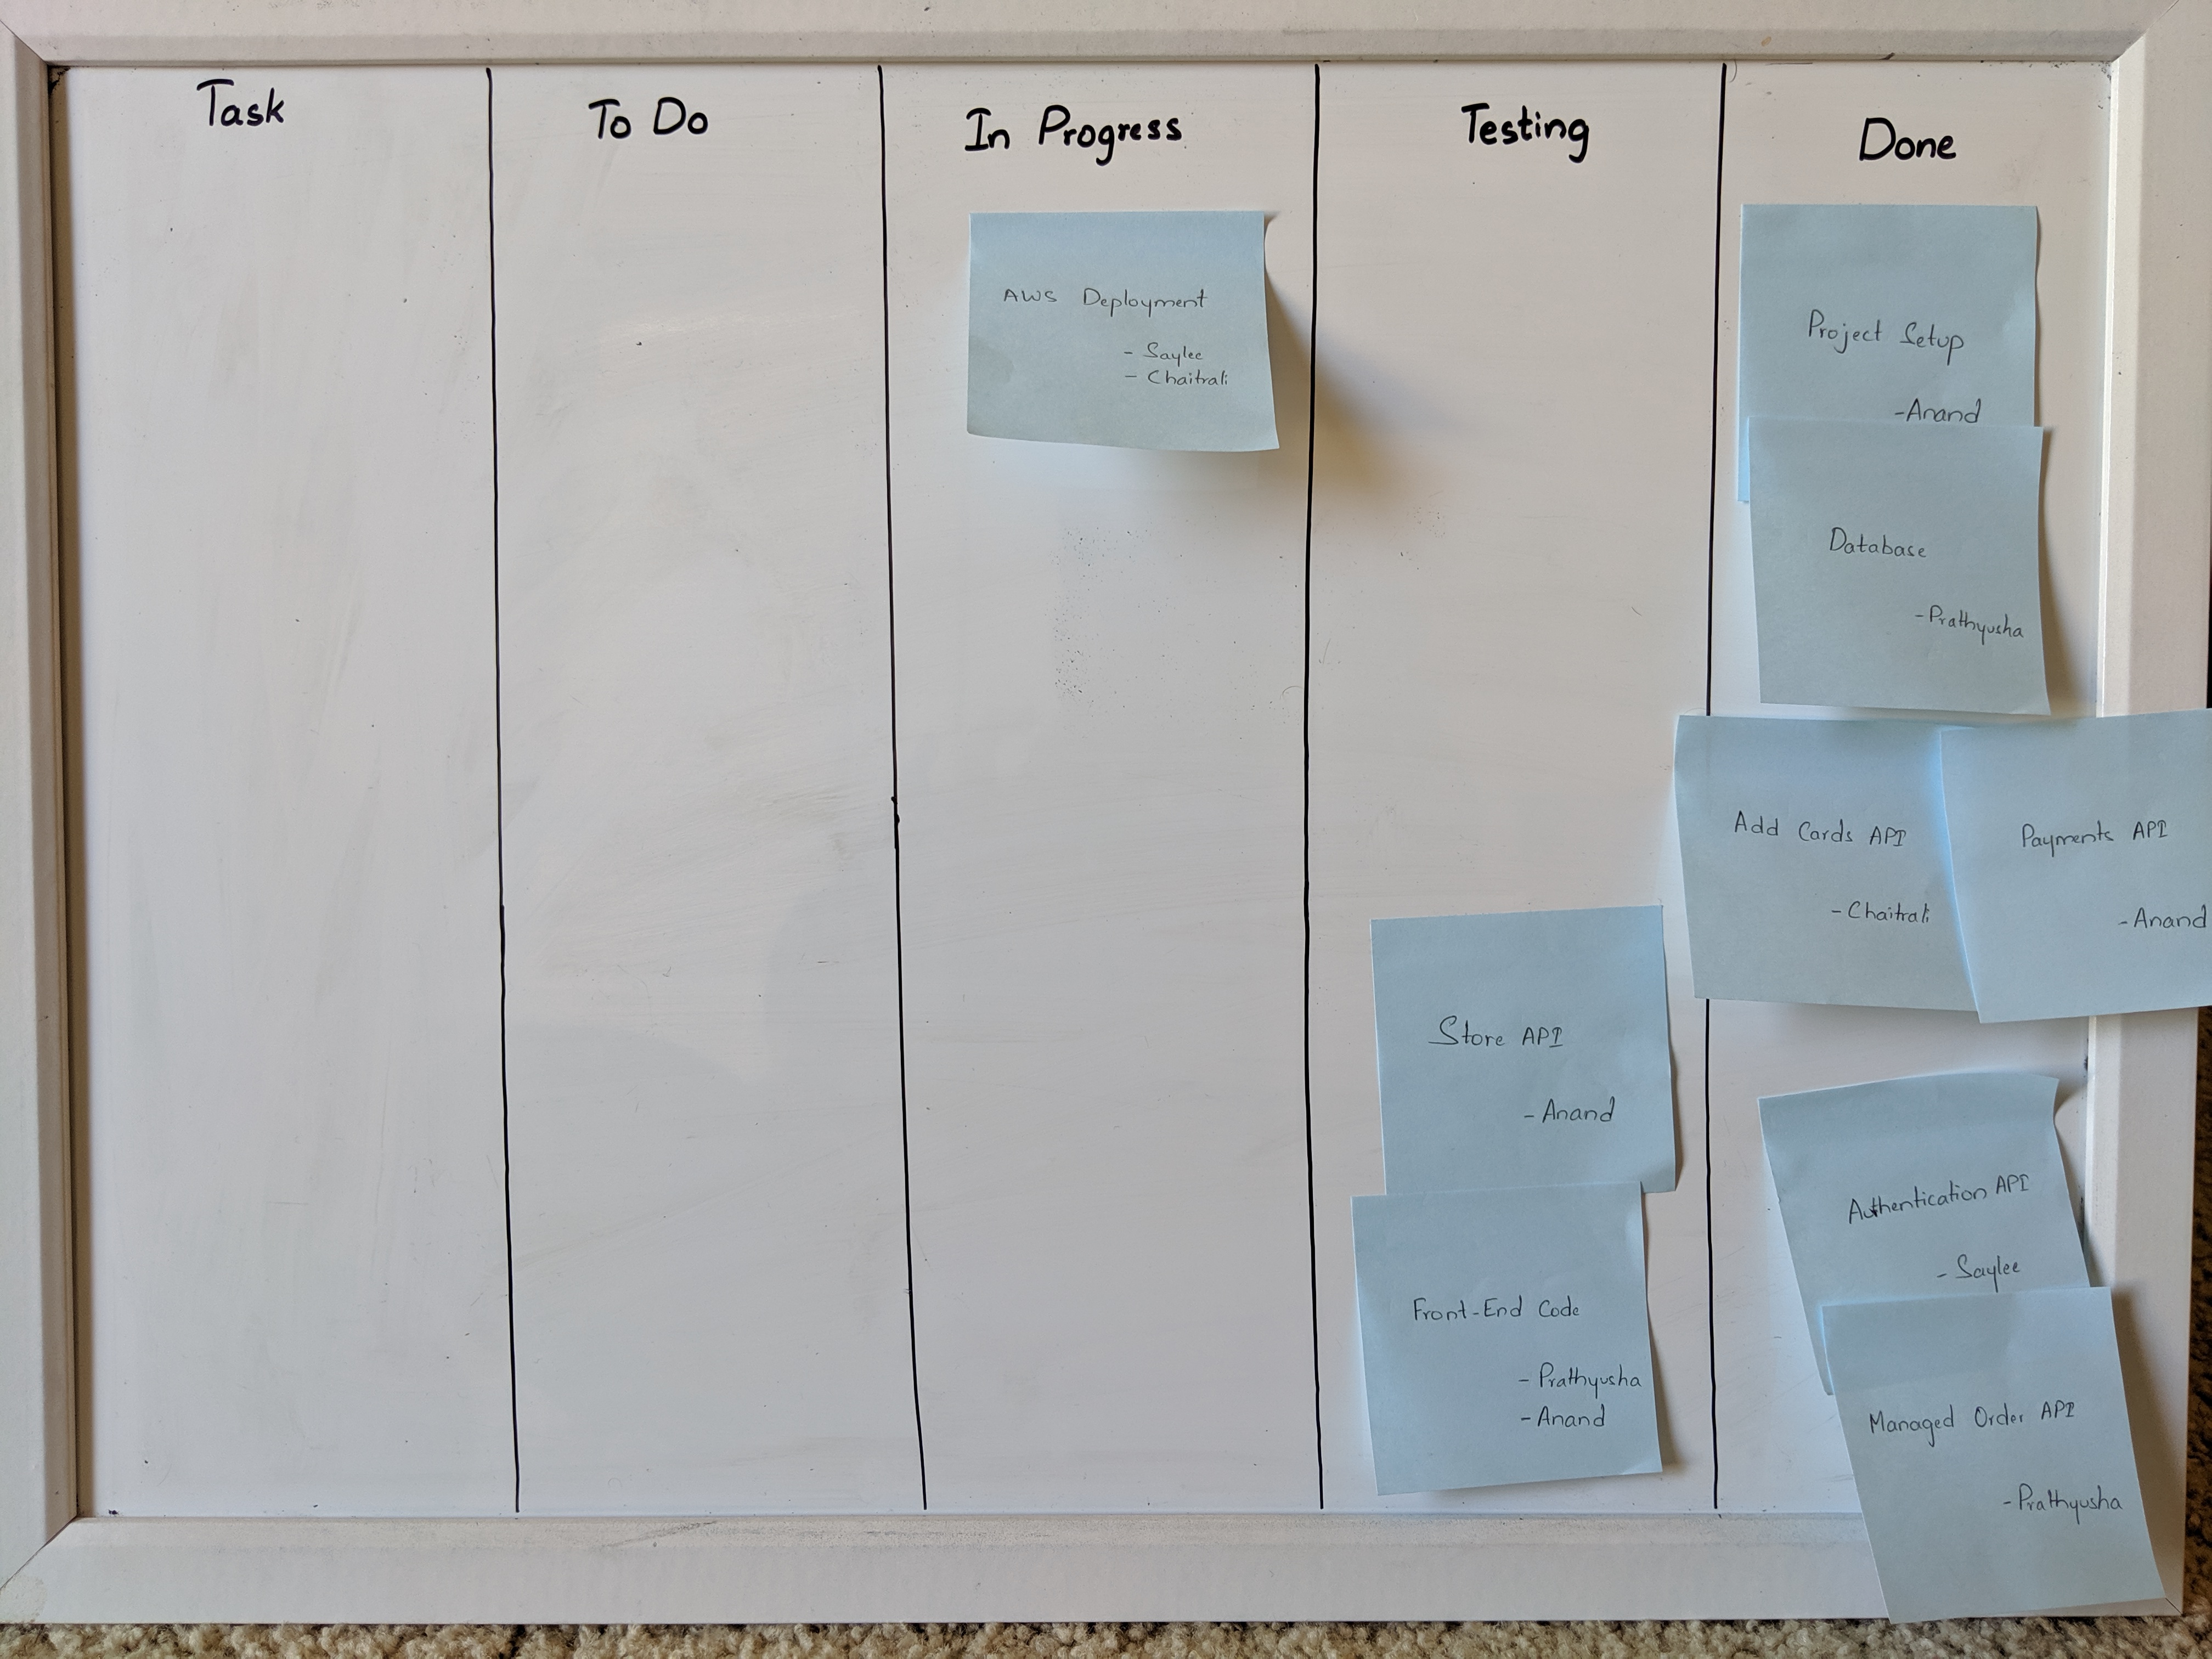 Task
To Do
In Progress
Testing
Done
AWS Deployment
- Saylee
- Chaitrali
Store API
- Anand
Front-End Code
- Prathyusha
- Anand
Project Setup
- Anand
Database
- Prathyusha
Add Cards API
- Chaitrali
Payments API
- Anand
Authentication API
- Saylee
Managed Order API
- Prathyusha